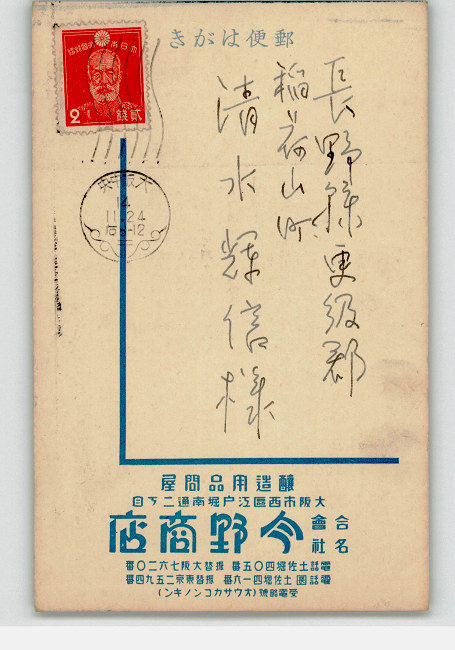 郵便はがき
大日本帝國郵便
2 錢 貳
大阪中央
14
11.24
后8-12
長野縣更級郡
稲荷山町
清水輝信様
醸造用品問屋
大阪市西區江戸堀南通二丁目
合名會社 今野商店
電話土佐堀四〇五番 振替大阪七六二〇番
電話園土佐堀四一六番 振替東京二五九四番
受電略號(オウサカコンノキン)